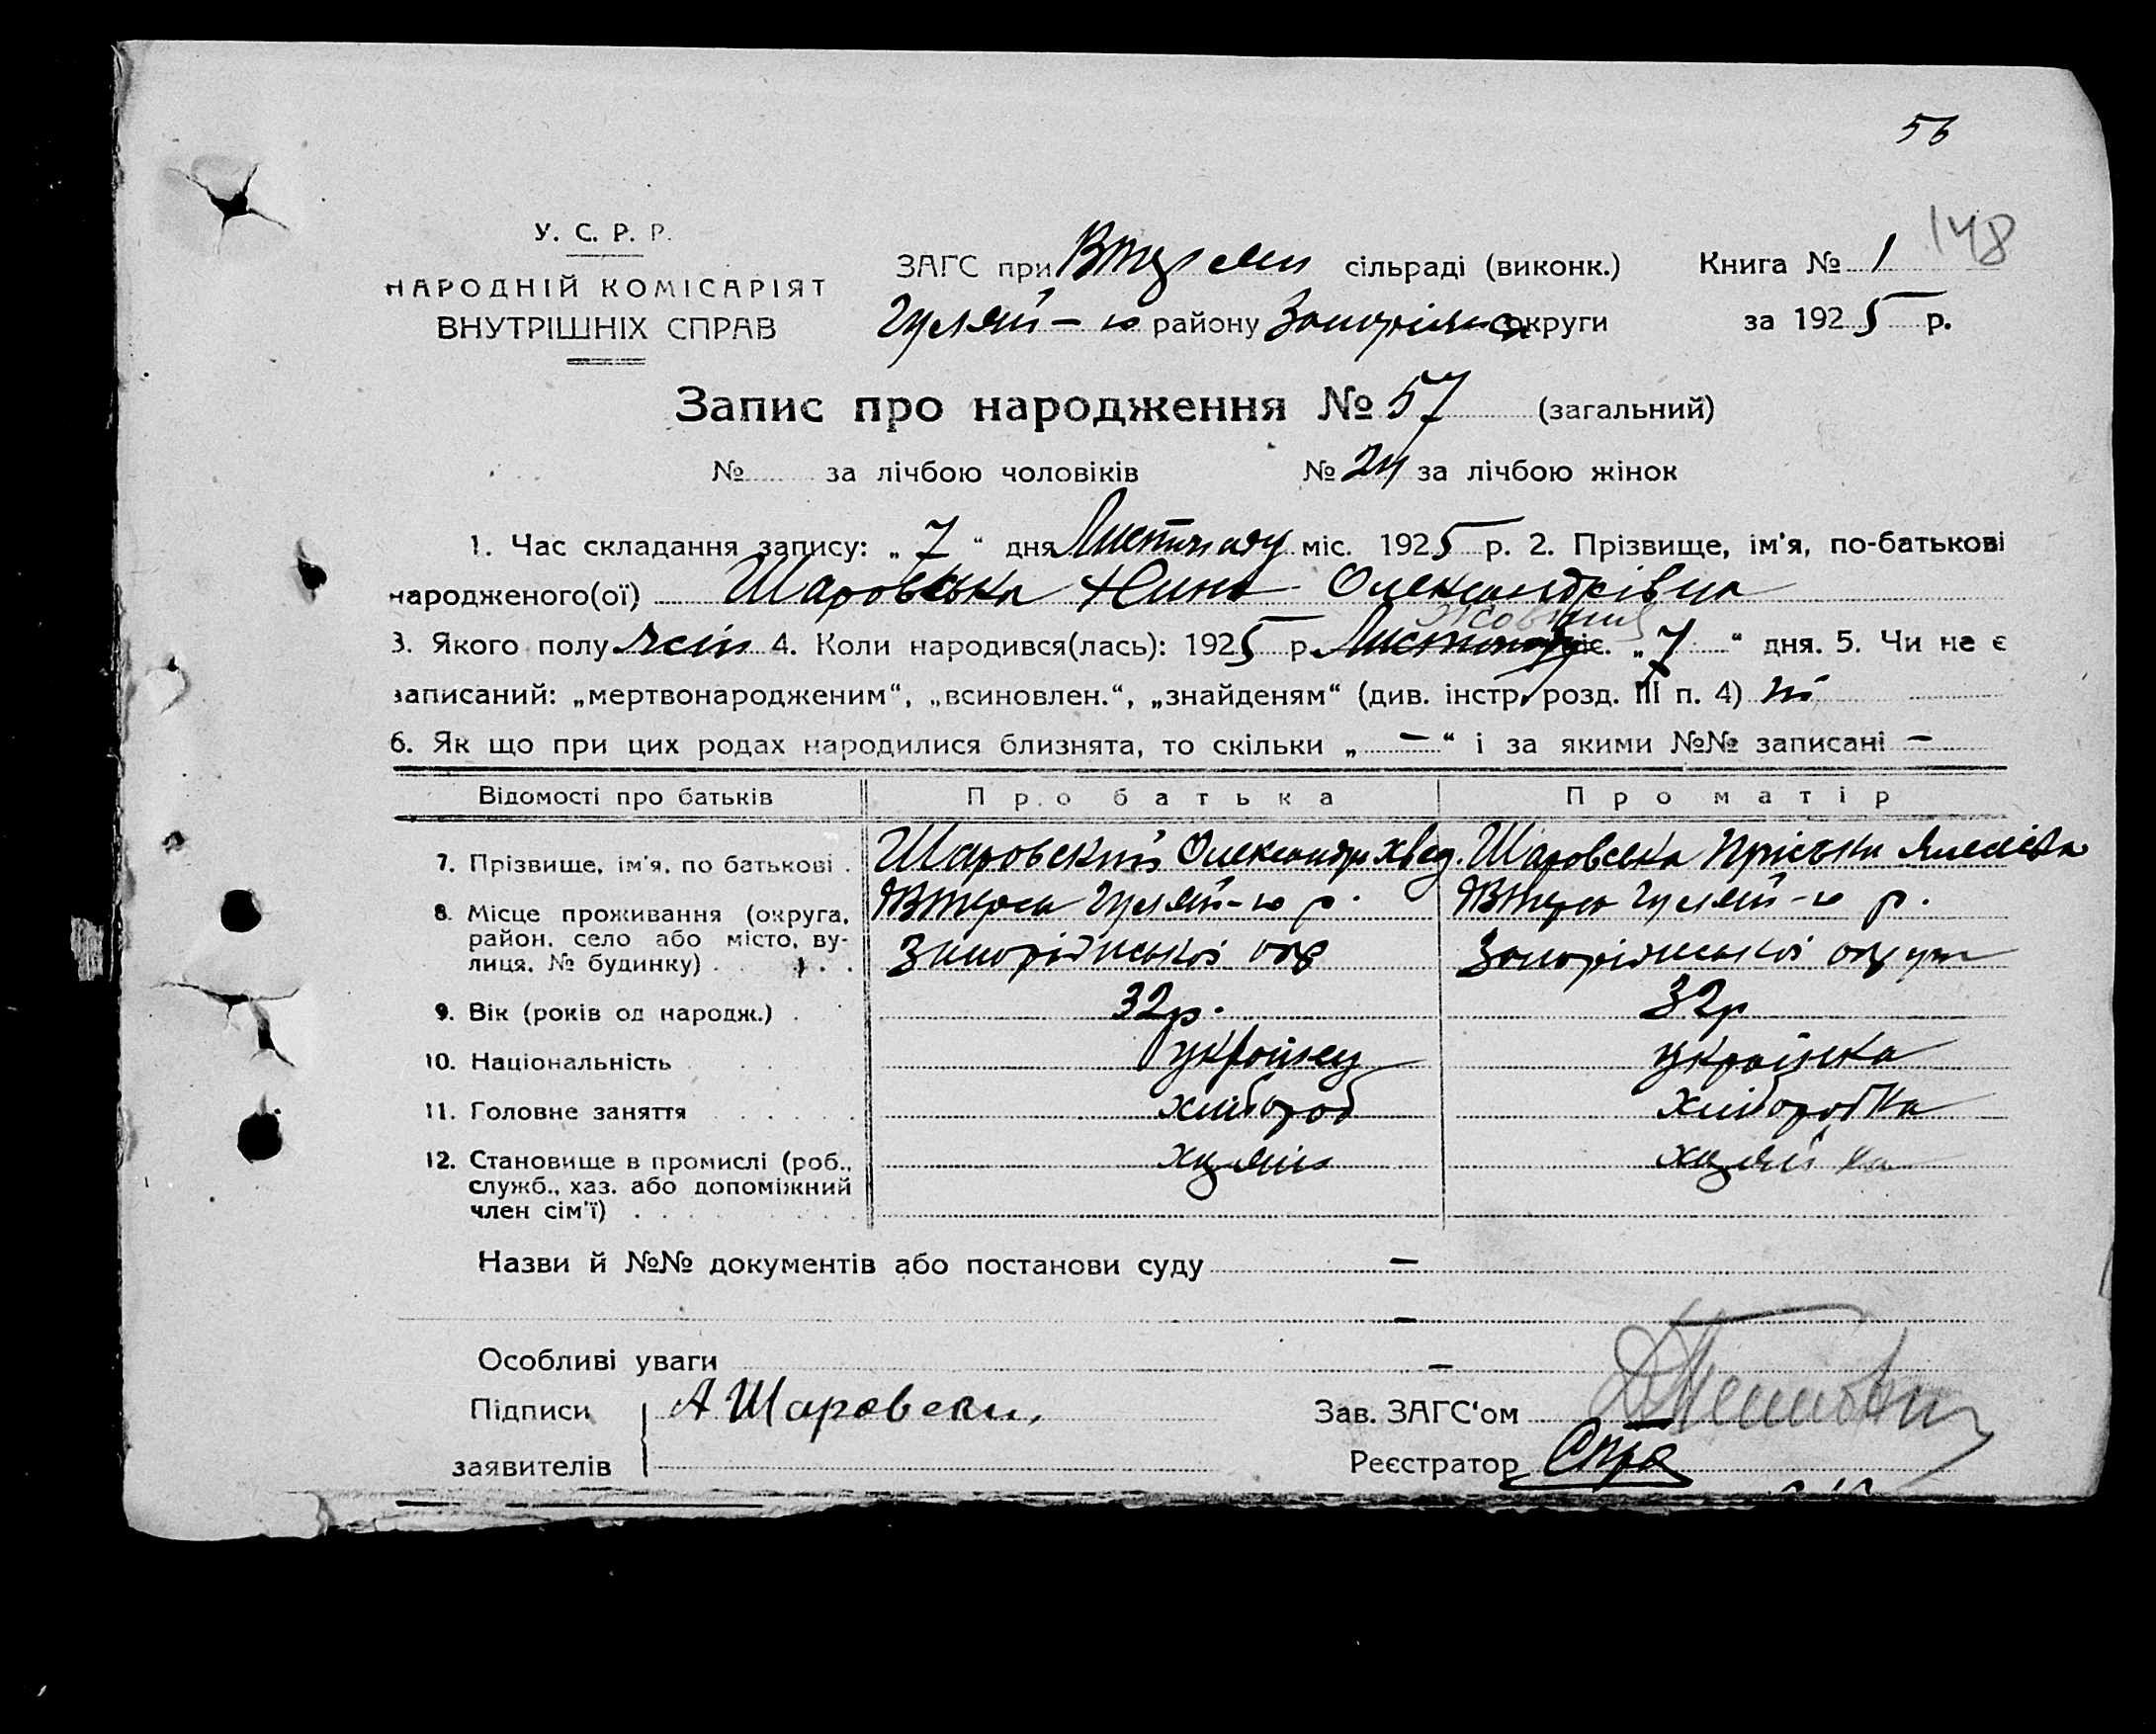 56
148
У. С. Р. Р.
НАРОДНІЙ КОМІСАРІЯТ
ВНУТРІШНІХ СПРАВ
ЗАГС при сільраді (виконк.)
Гуляй-п району Запоріжськ округи
Книга № 1
за 1925 р.
Запис про народження № 57 (загальний)
№ за лічбою чоловіків № 24 за лічбою жінок
1. Час складання запису: „ 7 “ дня Листопаду міс. 1925 р. 2. Прізвище, ім'я, по-батькові
народженого(ої) Шаровська Нина Олександрівна
3. Якого полу жін 4. Коли народився(лась): 1925 р. Листопаду Жовтня міс. „ 7 “ дня. 5. Чи не є
записаний: „мертвонародженим“, „всиновлен.“, „знайденям“ (див. інстр. розд. III п. 4) ні
6. Як що при цих родах народилися близнята, то скільки „ — “ і за якими №№ записані —
Відомості про батьків Про батька Про матір
7. Прізвище, ім'я, по батькові . Шаровский Олександр Хвед. Шаровська Пріська
8. Місце проживання (округа, Гуляй-п р. Гуляй-п р.
район, село або місто, ву- Запоріжської окр Запоріжської округи
лиця, № будинку) . . .
9. Вік (років од народж.) . 32р. 32р
10. Національність украінец украінка
11. Головне заняття хлібороб хліборобка
12. Становище в промислі (роб., хазяін хазяйка
служб., хаз. або допоміжний
член сім'ї) . . . . .
Назви й №№ документів або постанови суду —
—
Особливі уваги —
Підписи А Шаровски Зав. ЗАГС'ом
заявителів Реєстратор